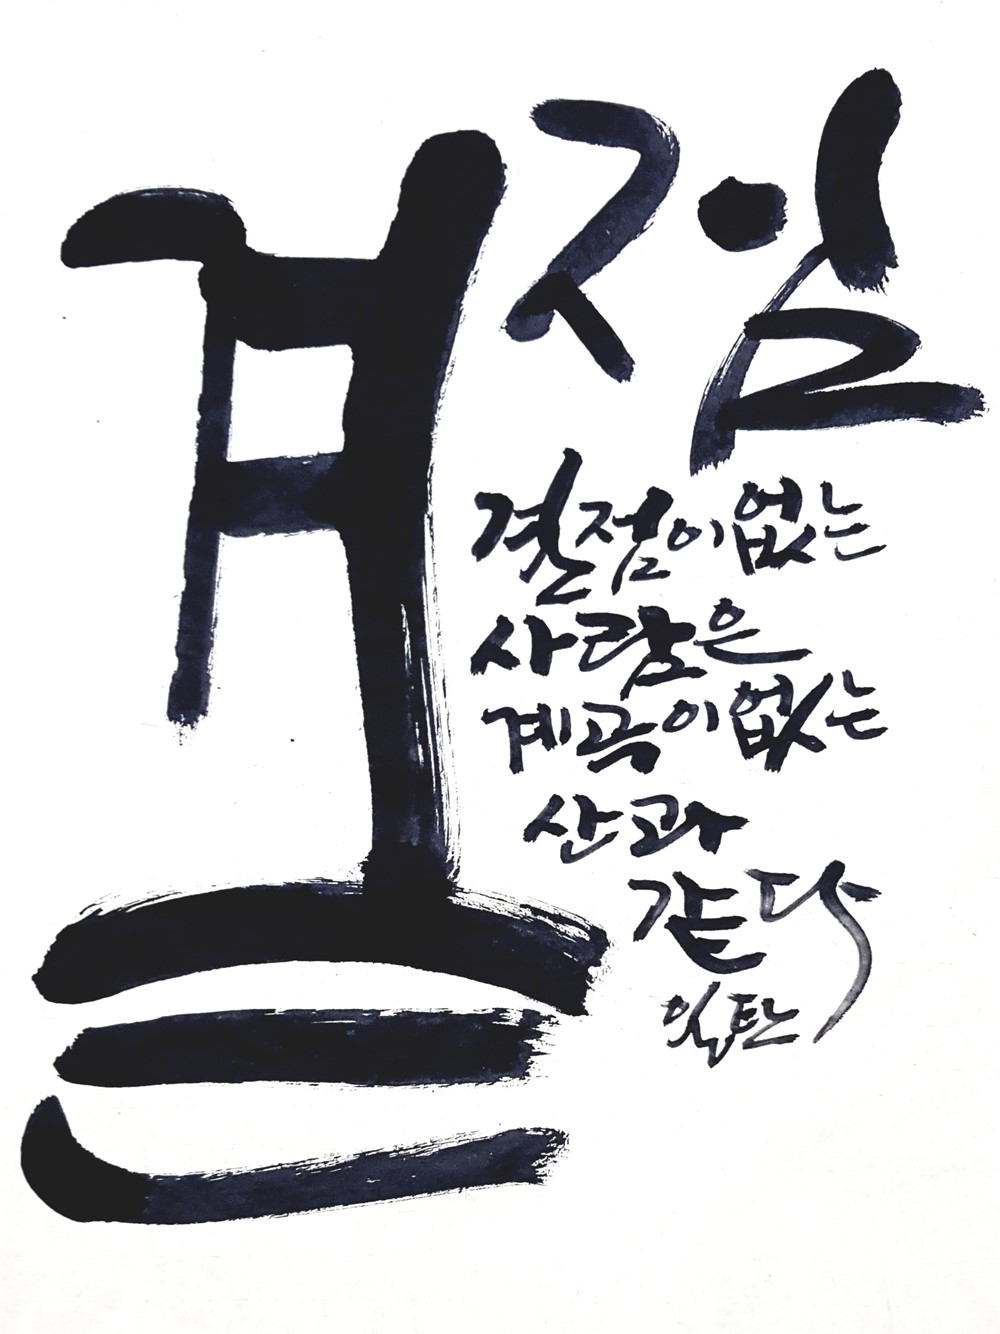 결점
결점이 없는
사람은
계곡이 없는
산과
같다